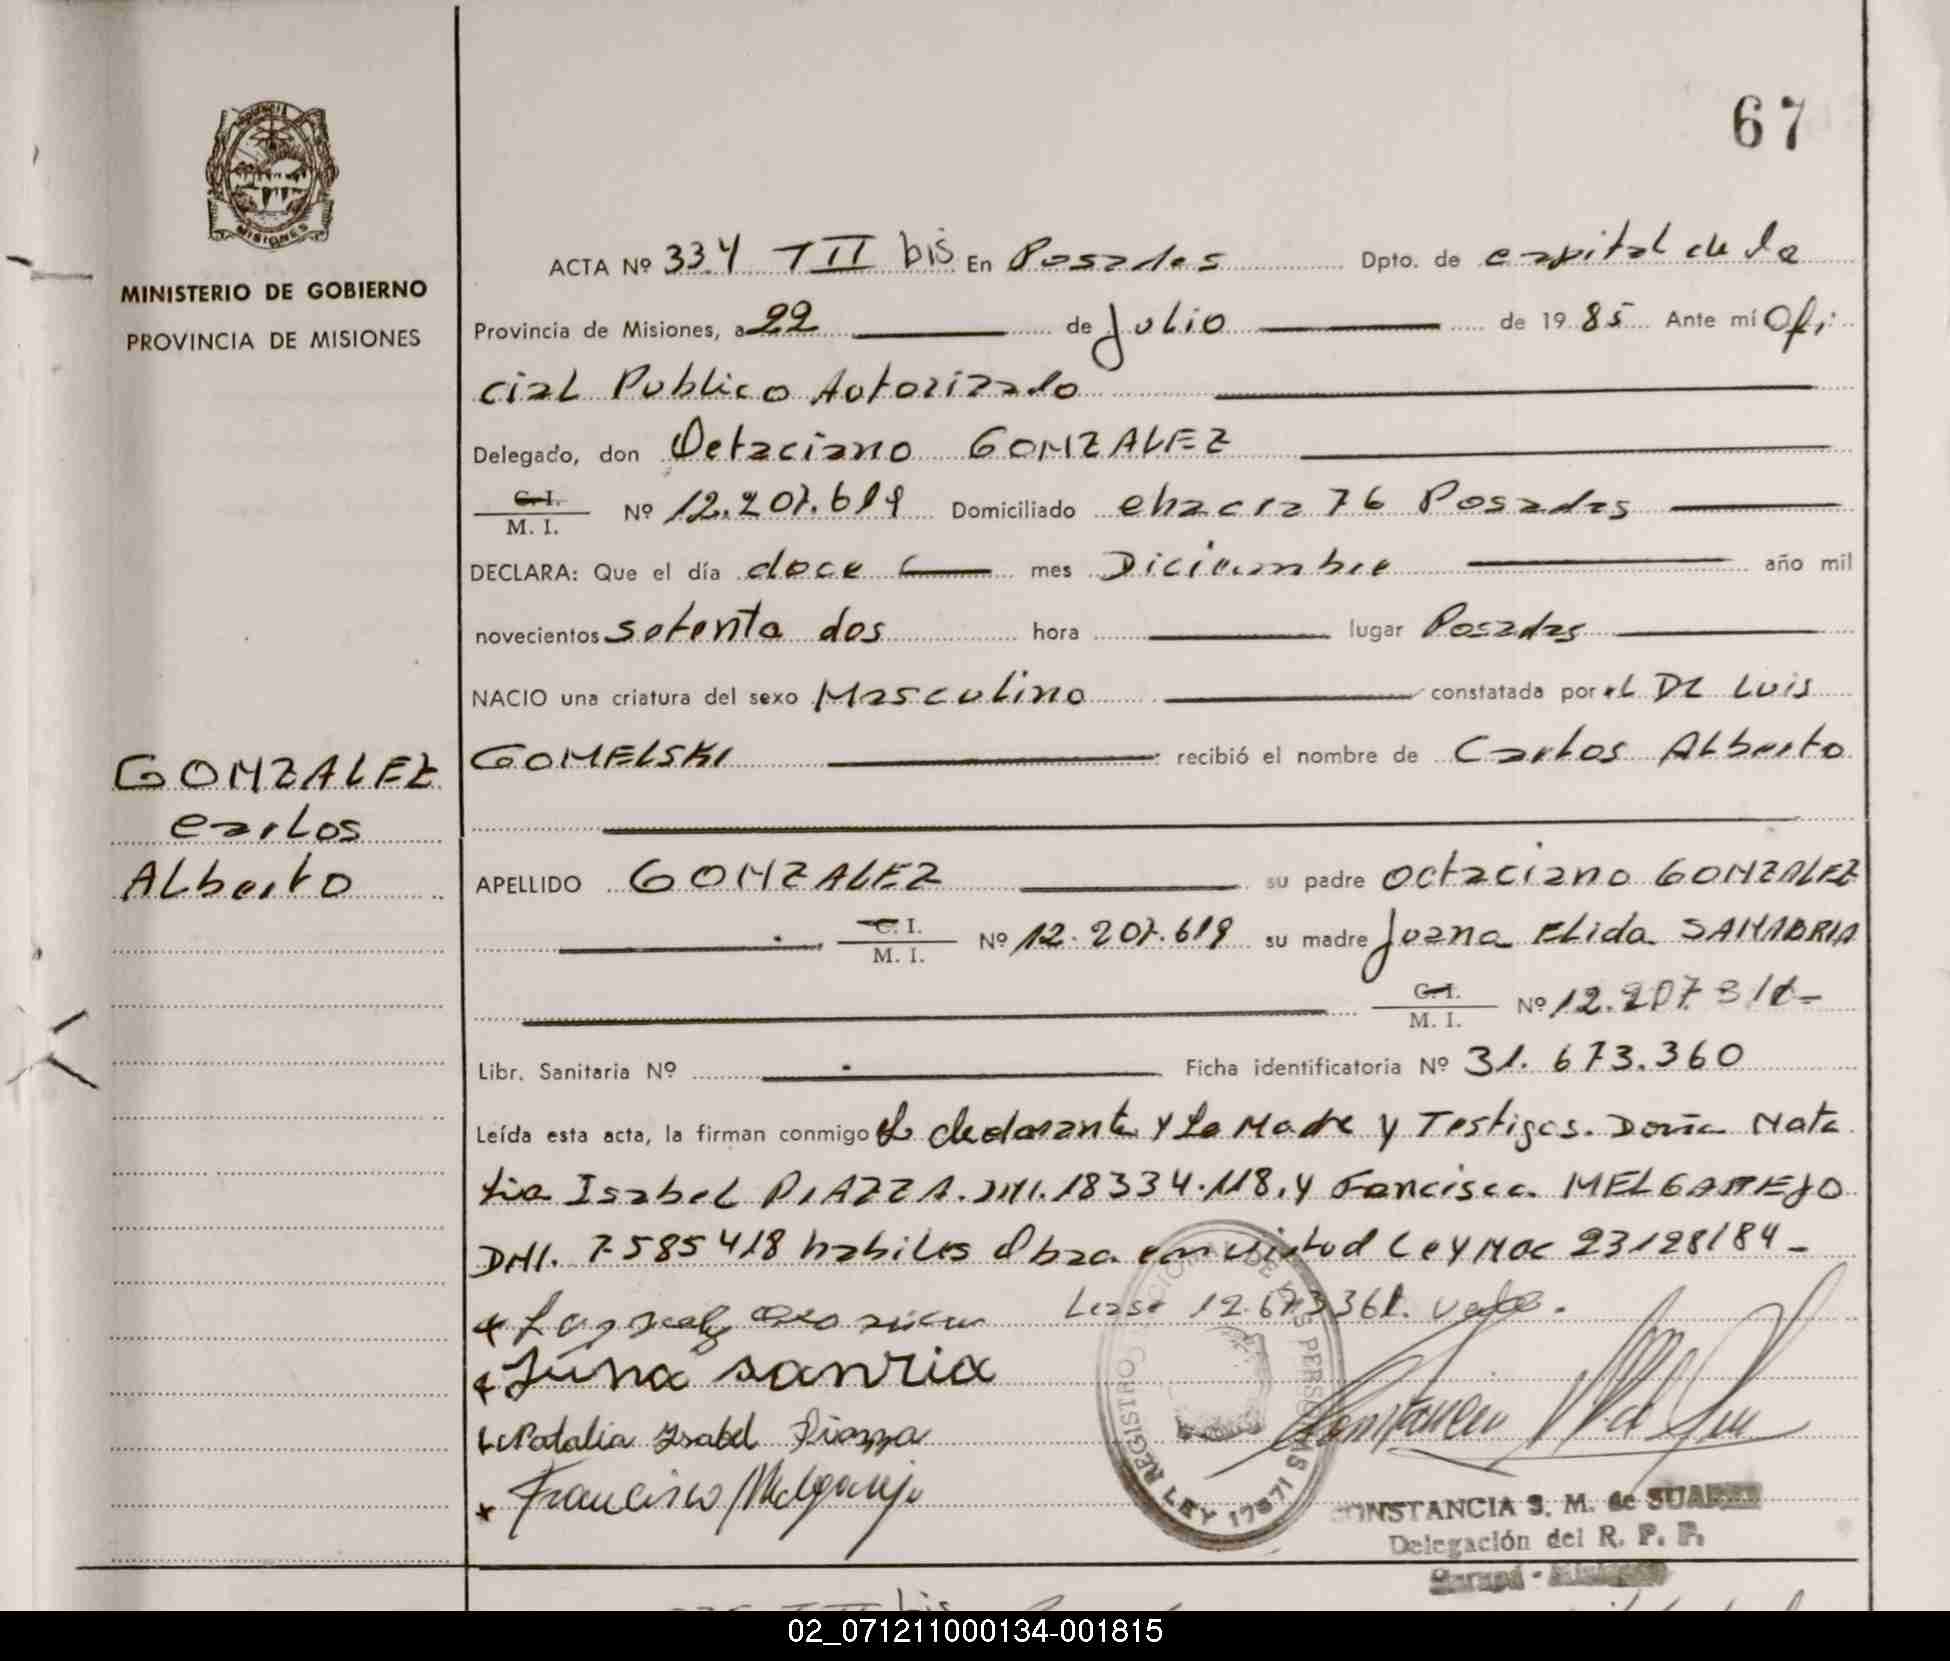 67
MISIONES
MINISTERIO DE GOBIERNO
PROVINCIA DE MISIONES
ACTA Nº 334 TII bis En Posadas Dpto. de capital de la
Provincia de Misiones, a 22 de Julio de 1985 Ante mí Ofi
cial Publico Autorizado
Delegado, don Octaciano GONZALEZ
C. I.
M. I. Nº 12.207.619 Domiciliado chacra 76 Posadas
DECLARA: Que el día doce mes Diciembre año mil
novecientos setenta dos hora lugar Posadas
NACIO una criatura del sexo Masculino constatada por el DR Luis
GOMELSKI recibió el nombre de Carlos Alberto
GONZALEZ
Carlos
Alberto
APELLIDO GONZALEZ su padre Octaciano GONZALEZ
C. I.
M. I. Nº 12.207.619 su madre Juana Elida SANABRIA
C. I.
M. I. Nº 12.207.
Libr. Sanitaria Nº Ficha identificatoria Nº 31.673.360
Leída esta acta, la firman conmigo el declarante y la Madre y Testigos. Doña Nata
lia Isabel PIAZZA. DNI. 18334.118, y Fancisco MELGAREJO
DNI. 7585418 habiles Obra en virtud Ley Nac 23128/84-
Lease 12.673361. vale.
Juna sanria
Natalia Isabel Piazza
Francisco Melgarejo
REGISTRO DE LAS PERSONAS
LEY 17671
CONSTANCIA S. M. de SUAREZ
Delegación del R. P. P.
bis
02_071211000134-001815